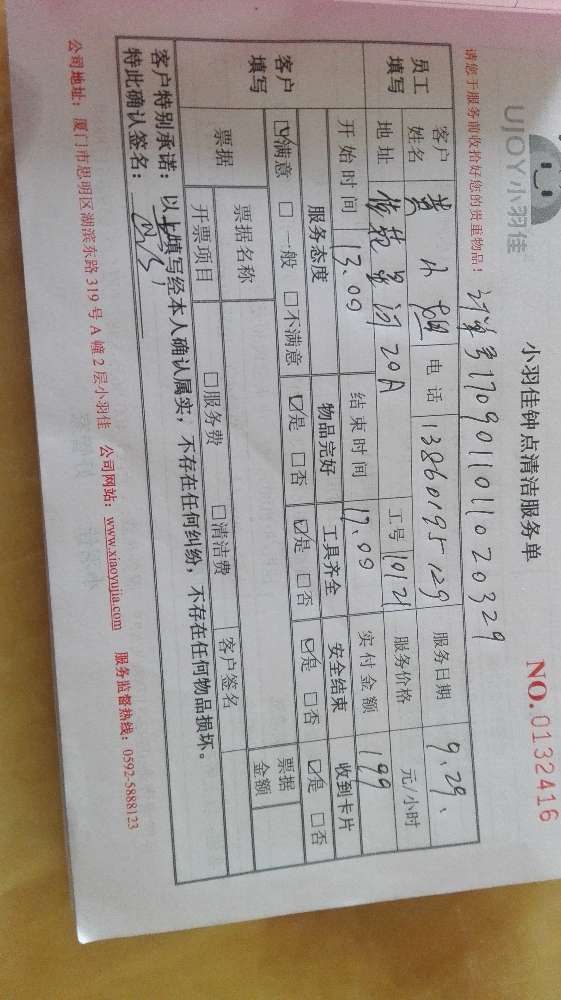 UJOY小羽佳
小羽佳钟点清洁服务单
NO.0132416
请您于服务前收拾好您的贵重物品！
订单号1709011011020329
员工填写
客户姓名 黄小姐 电话 13860195129 服务日期 9.29.
地址 20A 工号 10121 服务价格 元/小时
客户填写
开始时间 13.09 结束时间 17.09 实付金额 199
服务态度 物品完好 工具齐全 安全结束 收到卡片
☑满意 □一般 □不满意 ☑是 □否 ☑是 □否 ☑是 □否 ☑是 □否
票据 票据名称 票据金额
开票项目 □服务费 □清洁费 客户签名
客户特别承诺：以上填写经本人确认属实，不存在任何纠纷，不存在任何物品损坏。
特此确认签名：
公司地址：厦门市思明区湖滨东路319号A幢2层小羽佳 公司网站：www.xiaoyujia.com 服务监督热线：0592-5888123